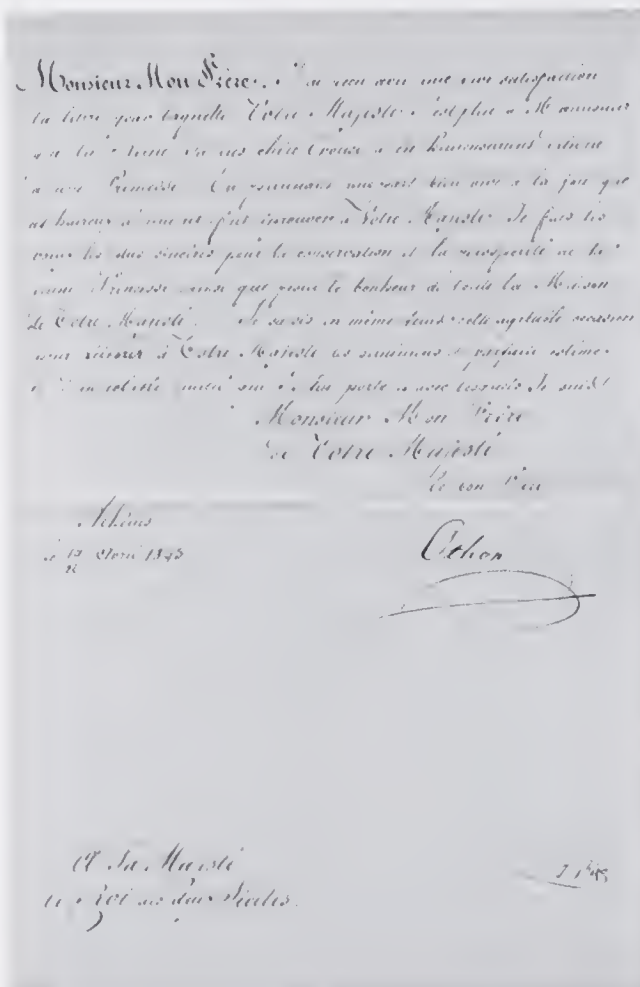 Monsieur Mon Frère. J'ai reçu avec une vive satisfaction
la lettre par laquelle Votre Majesté s'est plu à M'annoncer
que la Reine Sa très chère Epouse a
une Princesse. En prenant une part bien vive à la joie que
cet heureux événement fait éprouver à Votre Majesté Je fais les
vœux les plus sincères pour la conservation et la prospérité de la
jeune Princesse ainsi que pour le bonheur de toute la Maison
de Votre Majesté. Je saisis en même temps cette agréable occasion
pour réitérer à Votre Majesté les sentimens de parfaite estime
et d'inviolable amitié avec lesquels Je suis
Monsieur Mon Frère
de Votre Majesté
le bon Frère
Athènes
le Avril 1843
Othon
A Sa Majesté
le Roi des deux Siciles.